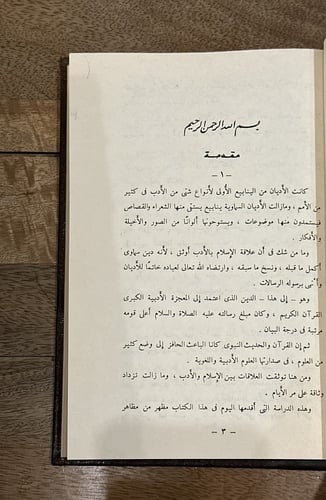 بسم الله الرحمن الرحيم
مقدمة
- ١ -
كانت الأديان من الينابيع الأولى لأنواع شتى من الأدب فى كثير
من الأمم ، ومازالت الأديان السماوية ينابيع يستقى منها الشعراء والقصاص
فيستمدون منها موضوعات ، ويستوحونها ألوانًا من الصور والأخيلة
والأفكار .
وما من شك فى أن علاقة الإسلام بالأدب أوثق ، لأنه دين سماوى
أكمل ما قبله ، ونسخ ما سبقه ، وارتضاه الله تعالى لعباده خاتمًا للأديان
وأنهى برسوله الرسالات .
وهو – إلى هذا – الدين الذى اعتمد إلى المعجزة الأدبية الكبرى
القرآن الكريم ، وكان مبلغ رسالته عليه الصلاة والسلام أعلى قومه
مرتبة فى درجة البيان .
ثم إن القرآن والحديث النبوى كانا الباعث الحافز إلى وضع كثير
من العلوم ، فى صدارتها العلوم الأدبية واللغوية .
ومن هنا توثقت العلاقات بين الإسلام والأدب ، وما زالت تزداد
وثاقة على مر الأيام .
وهذه الدراسة التى أقدمها اليوم فى هذا الكتاب مظهر من مظاهر
- ٣ -